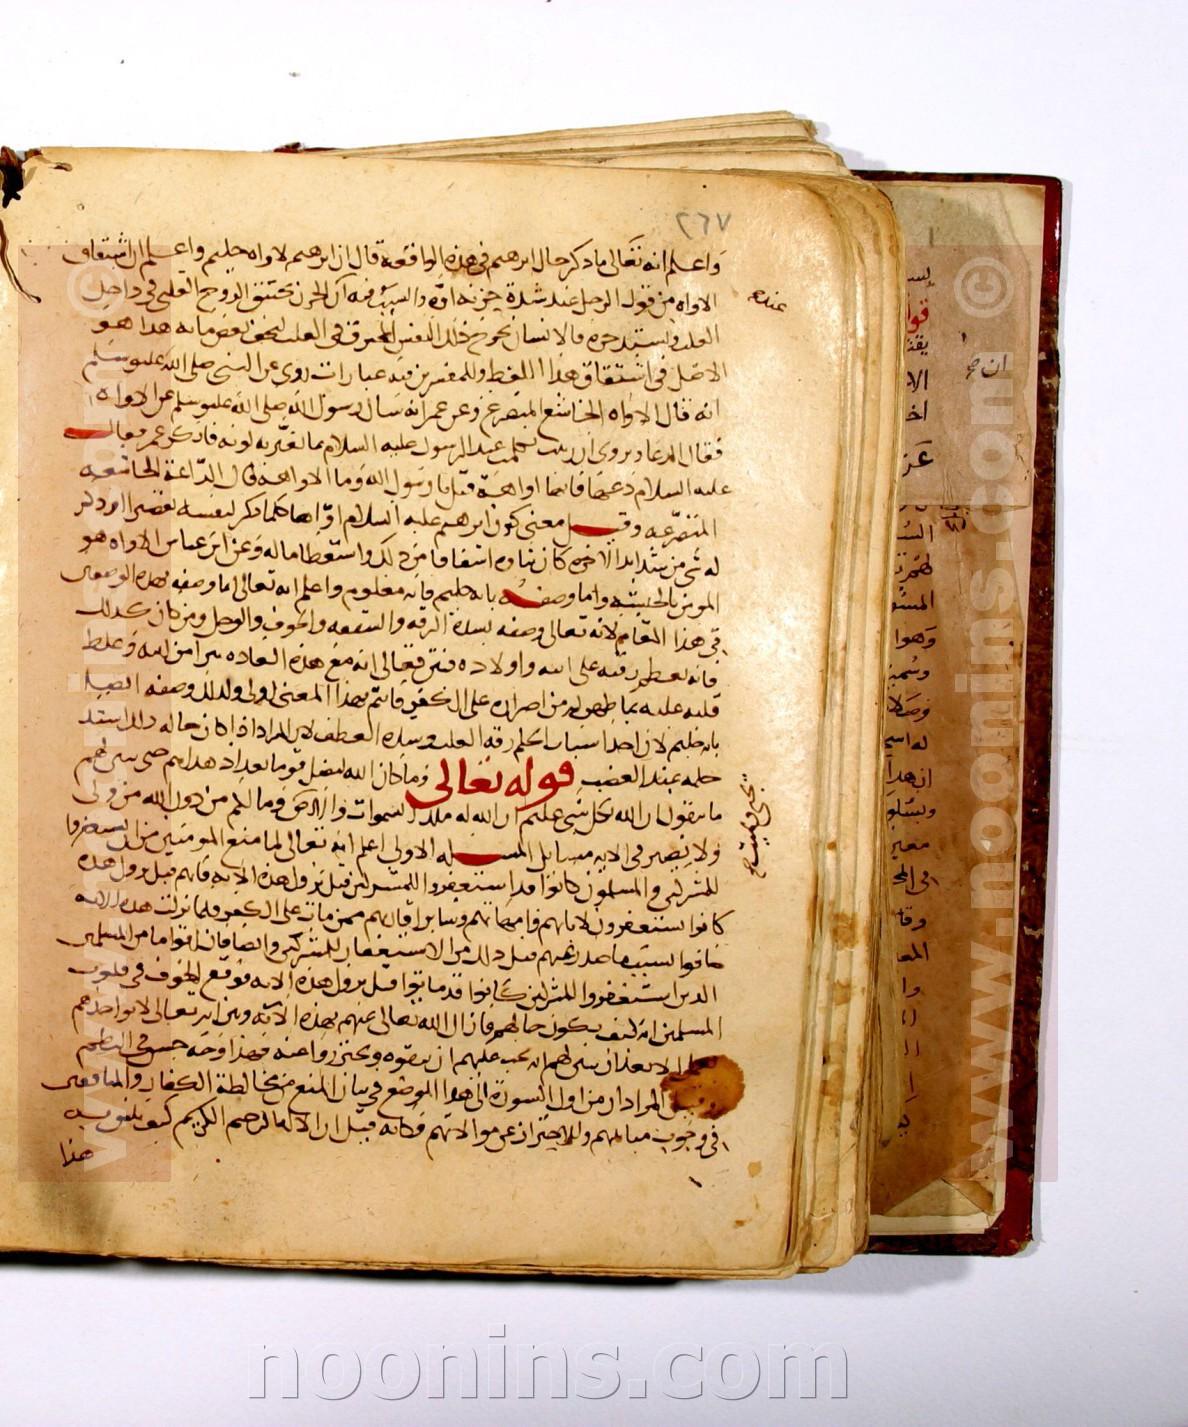 ٢٦٧
واعلم انه تعالى لما ذكر حال ابرهيم فى هذه الواقعة قال ان ابرهيم لاواه حليم واعلم ان اشتقاق
الاواه من قول الرجل عند شدة حزنه اوه والسبب فيه ان عند الحزن يختنق الروح القلبى فى داخل
القلب ويشتد حره فالانسان يخرج ذلك النفس المحترق فى القلب ليخف بعض ما به هذا هو
الاصل فى اشتقاق هذا اللفظ وللمفسرين فيه عبارات روى عن النبى صلى الله عليه وسلم
انه قال الاواه الخاشع المتضرع وعن عمر انه سال رسول الله صلى الله عليه وسلم عن الاواه
فقال الدعاء ويروى ان زينب تكلمت عند الرسول عليه السلام بما تغير به لونه فانكر عمر فقال
عليه السلام دعها فانها اواهة قيل يا رسول الله وما الاواهة قال الداعية الخاشعه
المتضرعه وقيل معنى كون ابرهيم عليه السلام اواها كلما ذكر لنفسه تقصيرا او ذكر
له شى من شدايد الاخره كان يتاوه اشفاقا من ذلك واستعظاما له وعن ابن عباس الاواه هو
المومن بالحبشيه واما وصفه بانه حليم فانه معلوم واعلم انه تعالى انما وصفه بهذه الوصفين
فى هذا المقام لانه تعالى وصفه بشدة الرقه والشفقه والخوف والوجل ومن كان كذلك
فانه تعظم رقته على ابيه واولاده فبين تعالى انه مع هذه العاده تبرا من ابيه وغلظ
قلبه عليه لما ظهر له من اصراره على الكفر فانتم بهذا المعنى اولى ولذلك وصفه ايضا
بانه حليم لان احد اسباب الحلم رقه القلب وشدة العطف لان المراد اذا كان حاله ذلك اشتد
حلمه عند الغضب قوله تعالى وما كان الله ليضل قوما بعد اذ هداهم حتى يبين لهم
ما يتقون ان الله بكل شى عليم ان الله له ملك السموات والارض وما لكم من دون الله من ولى
ولا نصير فى الايه مسايل المسئله الاولى اعلم انه تعالى لما منع المومنين من ان يستغفروا
للمشركين والمسلمون كانوا قد استغفروا للمشركين قبل نزول هذه الايه فانهم قبل نزول هذه
كانوا يستغفرون لابائهم وامهاتهم وساير اقربائهم ممن مات على الكفر فلما نزلت هذه الايه
خافوا بسبب ما صدر عنهم قبل ذلك من الاستغفار للمشركين وايضا فان اقواما من المسلمين
الذين استغفروا للمشركين كانوا قد ماتوا قبل نزول هذه الايه فوقع الخوف فى قلوب
المسلمين انه كيف يكون حالهم فازال الله تعالى عنهم بهذه الاية وبين انه تعالى لا يواخذهم
بعمل الا بعد ان يبين لهم انه يجب عليهم ان يتقوه ويحترزوا عنه فهذا وجه حسن فى النظم
وقيل المراد ان من اول السورة الى هذا الموضع فى بيان المنع من مخالطة الكفار والمنافقين
فى وجوب مباينتهم والاحتراز عن موالاتهم فكانه قيل ان الاله الرحيم الكريم كيف يليق به
هذا
عند
ان
www.noonins.com
©
noonins.com